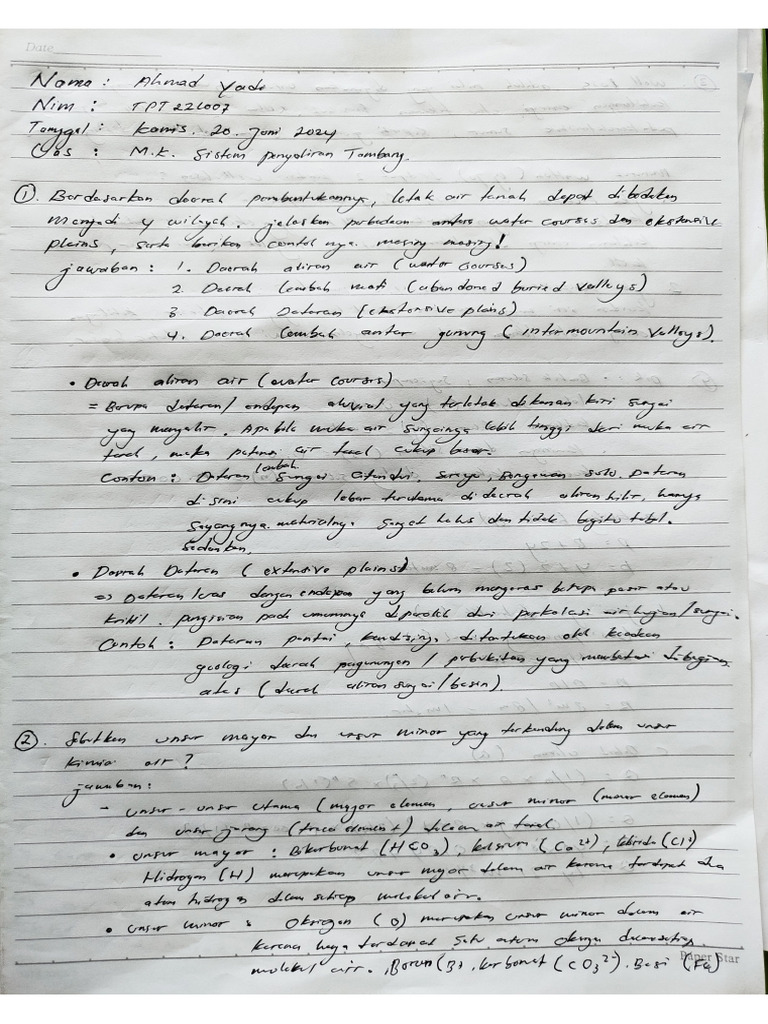 Date
Nama : Ahmad Yade
Nim : TPT221007
Tanggal : Kamis, 20. Juni 2024
: M.K. Sistem Penyaliran Tambang.
① Berdasarkan daerah pembentukannya, letak air tanah dapat dibedakan
menjadi 4 wilayah. jelaskan perbedaan antara water courses dan ekstensive
plains, serta berikan contohnya masing masing!
jawaban : 1. Daerah aliran air (water courses)
2. Daerah lembah mati (abandoned buried valleys)
3. Daerah Dataran (ekstensive plains)
4. Daerah lembah antar gunung (intermountain Valleys).
• Daerah aliran air (water courses)
= Berupa dataran/ endapan aluvial yang terletak dikanan kiri sungai
yang mengalir. Apabila muka air sungainya lebih tinggi dari muka air
tanah, maka potensi air tanah cukup besar.
Contoh : Dataran lembah sungai citanduy, serayu, bengawan solo. Dataran
disini cukup lebar terutama di daerah aliran hilir, hanya
sayangnya materialnya sangat halus dan tidak begitu tebal.
Sedangkan,
• Daerah Dataran (extensive plains)
=> Dataran luas dengan endapan yang belum mengeras berupa pasir atau
krikil. pengisian pada umumnya diperoleh dari perkolasi air hujan/sungai.
Contoh : Dataran pantai, ditentukan oleh keadaan
geologi daerah pegunungan / perbukitan yang membatasi dibagian
atas (daerah aliran sungai/basin).
② Sebutkan unsur mayor dan unsur minor yang terkandung dalam unsur
kimia air ?
jawaban :
- unsur-unsur utama (mayor elemen, unsur minor (minor elemen)
dan unsur jarang (trace element) dalam air tanah.
• unsur mayor : Bikarbonat (HCO3), kalsium (Ca2+),
Hidrogen (H) merupakan unsur mayor dalam air karena terdapat dua
atom hidrogen dalam setiap molekul air.
• unsur minor : Oksigen (O) merupakan unsur minor dalam air
karena hanya terdapat satu atom oksigen dalam setiap
molekul air. , Borum (B), karbonat (CO3 2-). Besi (Fe)
Paper Star